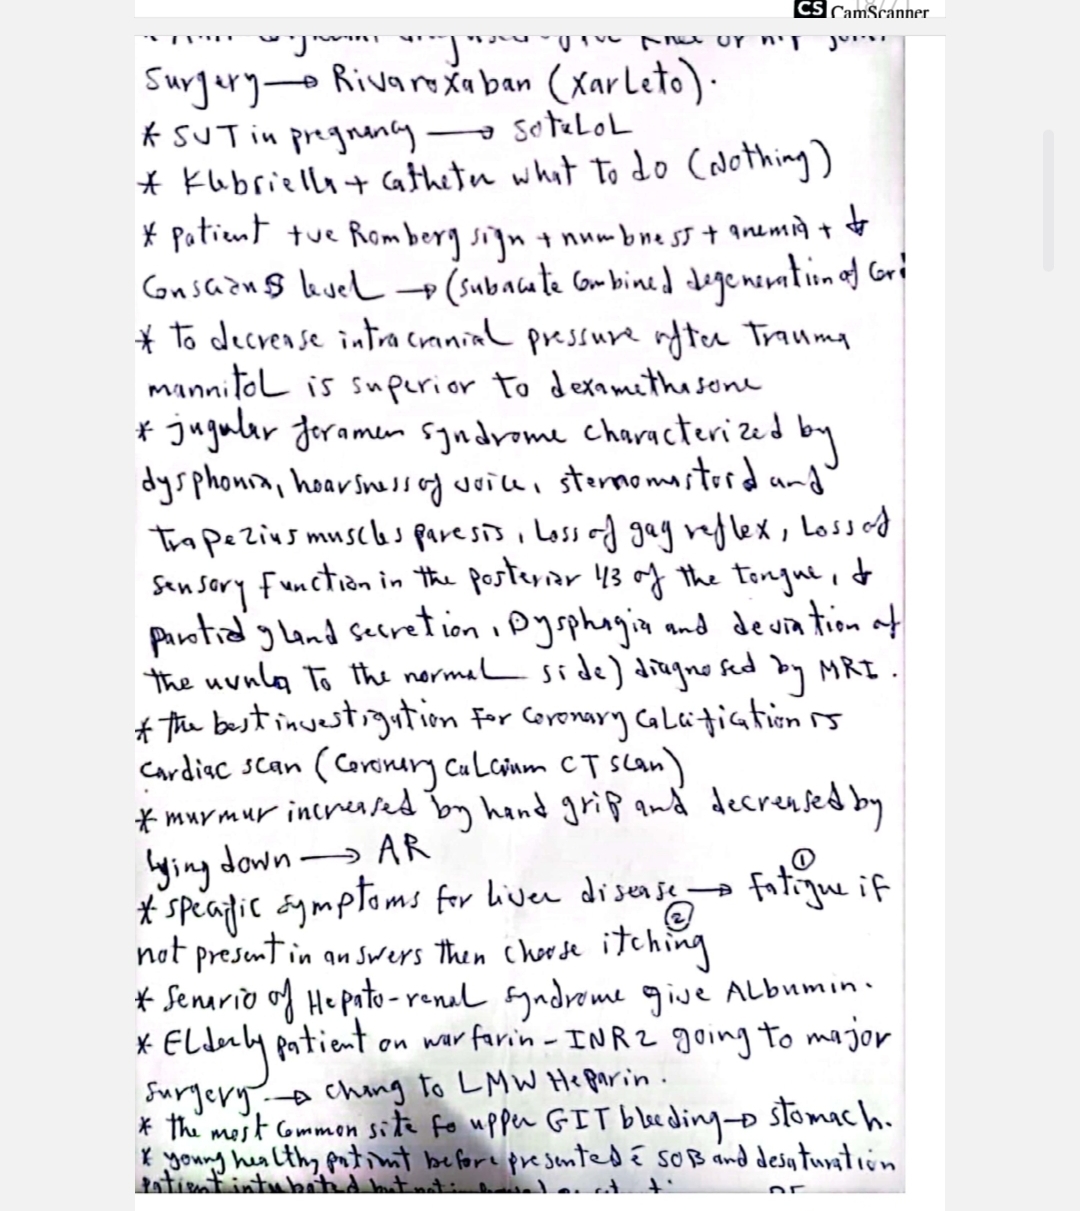 CS CamScanner
surgery → Rivaroxaban (Xarleto).
* SVT in pregnancy → sotaLoL
* Klebriella + Catheter what To do (Nothing)
* patient +ve Romberg sign + numbness + anemia + ↓
Conscious level → (subacute Combined degeneration of Cord
* To decrease intracranial pressure after Trauma
mannitoL is superior to dexamethasone
* jugular foramen syndrome characterized by
dysphonia, hoarsness of voice, sternomastoid and
trapezius muscles paresis, Loss of gag reflex, Loss of
sensory function in the posterior 1/3 of the tongue, ↓
parotid gland secretion, Dysphagia and deviation of
the uvula To the normal side) diagnosed by MRI.
* The best investigation For Coronary Calcification is
cardiac scan (Coronary Calcium CT scan)
* murmur increased by hand grip and decreased by
lying down → AR
* specific symptoms for liver disease → ① Fatigue if
not present in answers then choose ② itching
* Senario of Hepato-renal syndrome give ALbumin.
* ELderly patient on warfarin - INR 2 going to major
surgery → chang to LMW Heparin.
* The most Common site fo upper GIT bleeding → stomach.
* young healthy patient before presented c̄ SOB and desaturation
patient intubated but not